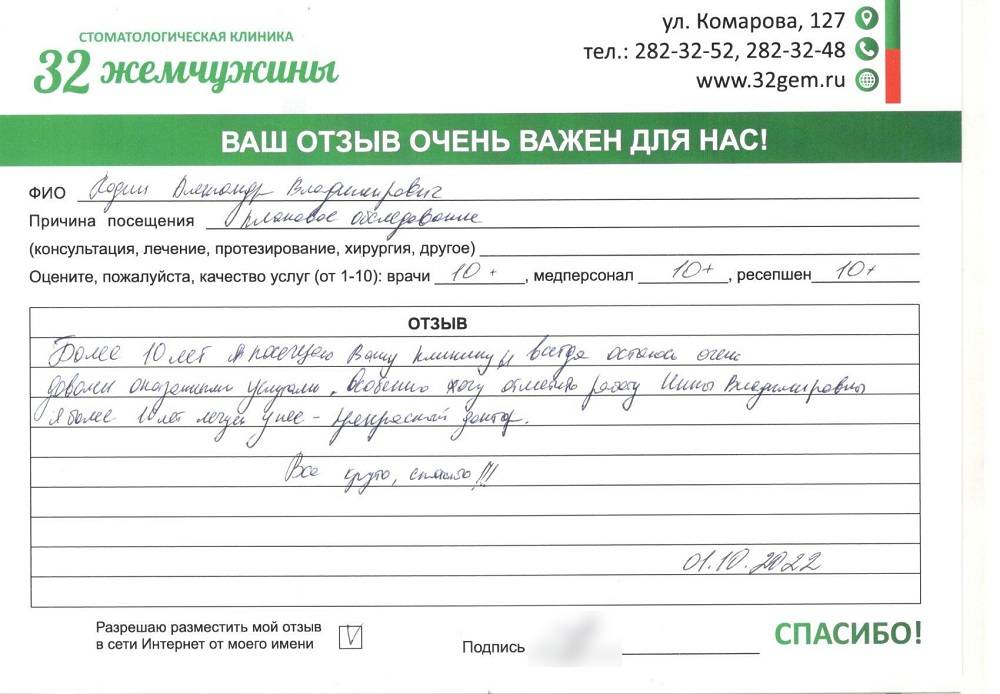 СТОМАТОЛОГИЧЕСКАЯ КЛИНИКА
32 жемчужины
ул. Комарова, 127
тел.: 282-32-52, 282-32-48
www.32gem.ru
ВАШ ОТЗЫВ ОЧЕНЬ ВАЖЕН ДЛЯ НАС!
ФИО Александр Владимирович
Причина посещения плановое обследование
(консультация, лечение, протезирование, хирургия, другое)
Оцените, пожалуйста, качество услуг (от 1-10): врачи 10+, медперсонал 10+, ресепшен 10+
ОТЗЫВ
Более 10 лет я посещаю Вашу клинику и всегда остаюсь очень
доволен оказанными услугами. Особенно хочу отметить работу Инны Владимировны
Я более 10 лет лечусь у нее - прекрасный доктор.
Все круто, спасибо!!!
01.10.2022
Разрешаю разместить мой отзыв
в сети Интернет от моего имени
Подпись
СПАСИБО!